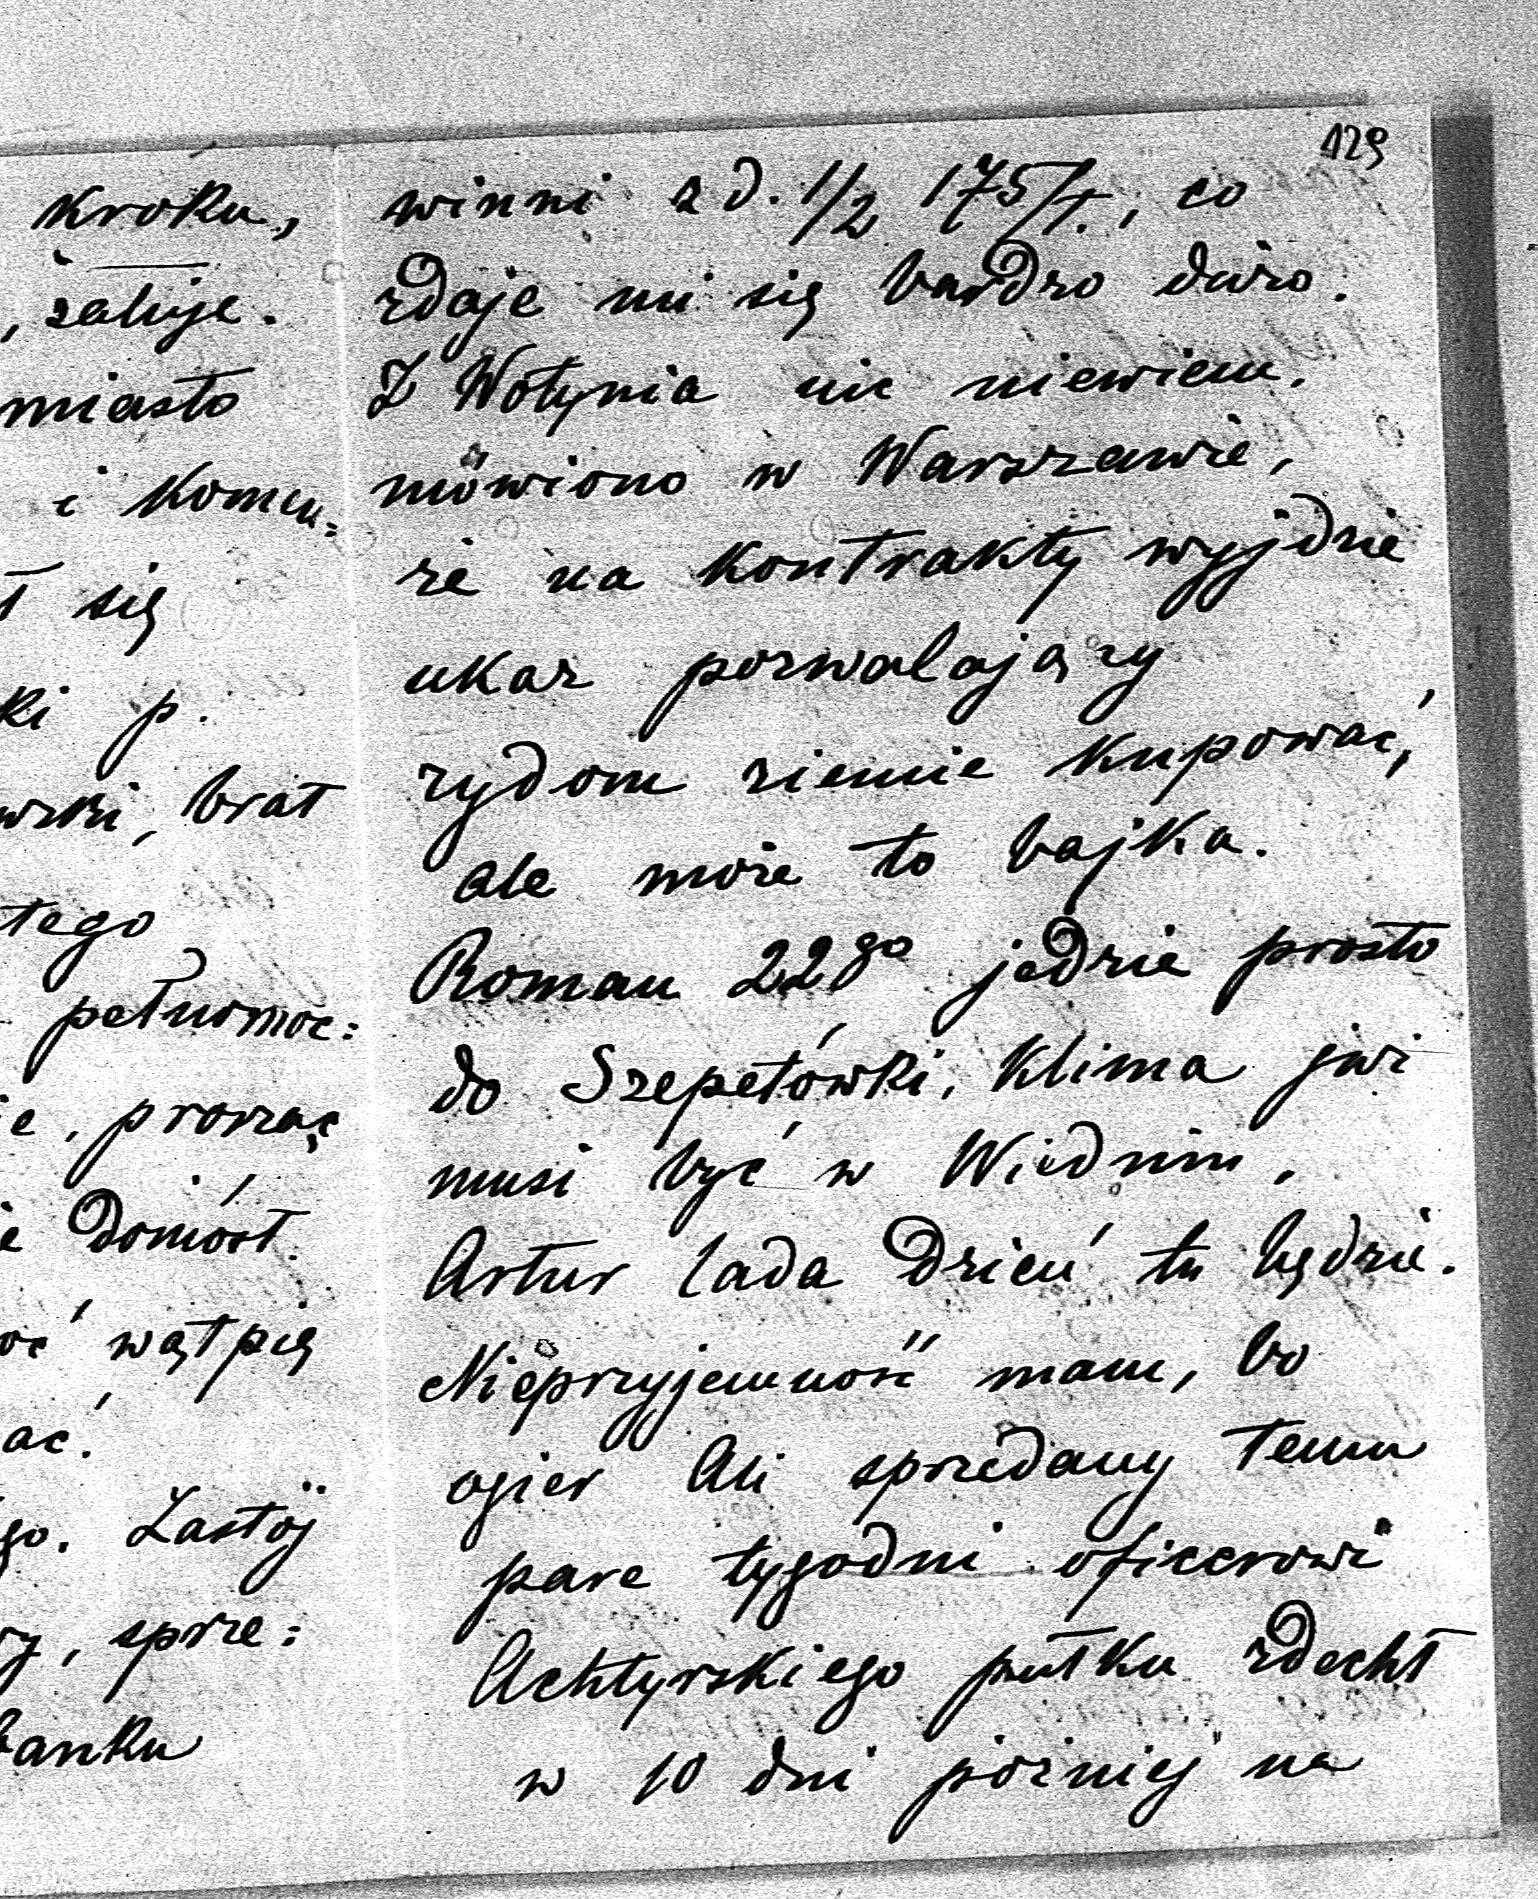 kroku,
, żałuje.
miasto
i Komu=
ł się
ki p.
wski, brat
tego
pełnomoc=
ie, prosząc
ie doniósł.
oć wątpię
ać.
go. Zastój
rz, sprze=
banku
129
winni zd. 1/2 175/т., co
zdaje mi się bardzo dużo.
Z Wołynia nic niewiem.
mówiono w Warszawie,
że na kontrakty wyjdzie
ukaz pozwalający
żydom ziemie kupować,
ale może to bajka.
Roman 22go jedzie prosto
do Szepetówki, Klima już
musi być w Wiedniu.
Artur lada dzień tu będzie.
Nieprzyjemność mam, bo
ogier Ali sprzedany temu
pare tygodni oficerowi
Achtyrskiego pułku zdechł
w 10 dni poźniej na